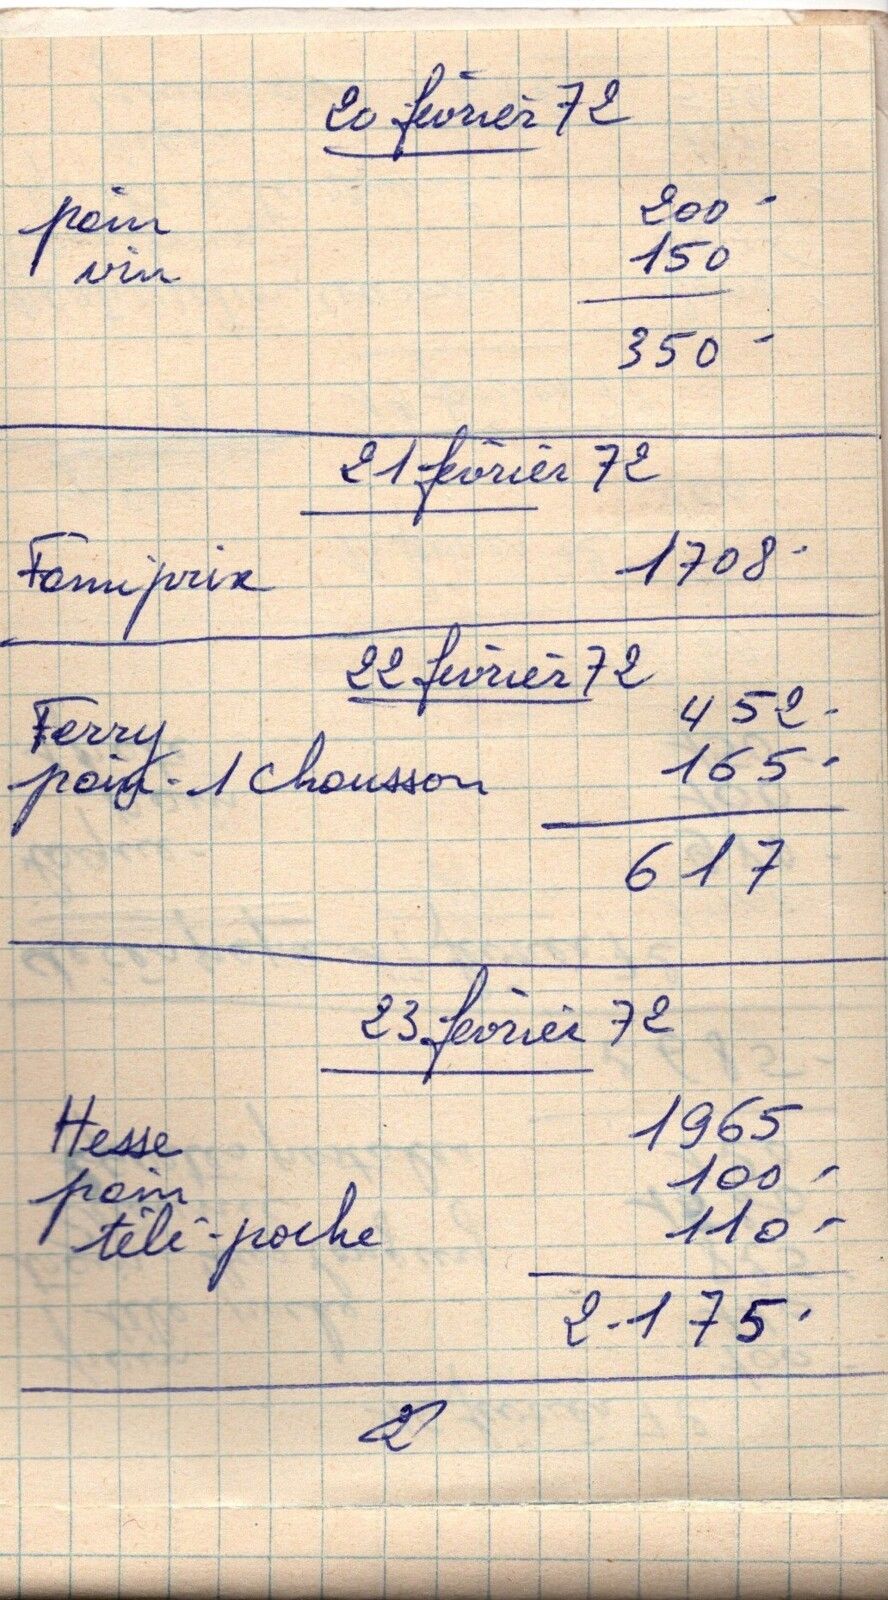 20 février 72
pain 200-
vin 150
350-
21 février 72
Famiprix 1708-
22 février 72
Ferry 452-
pain - 1 chausson 165-
617
23 février 72
Hesse 1965
pain 100-
télé-poche 110-
2-175-